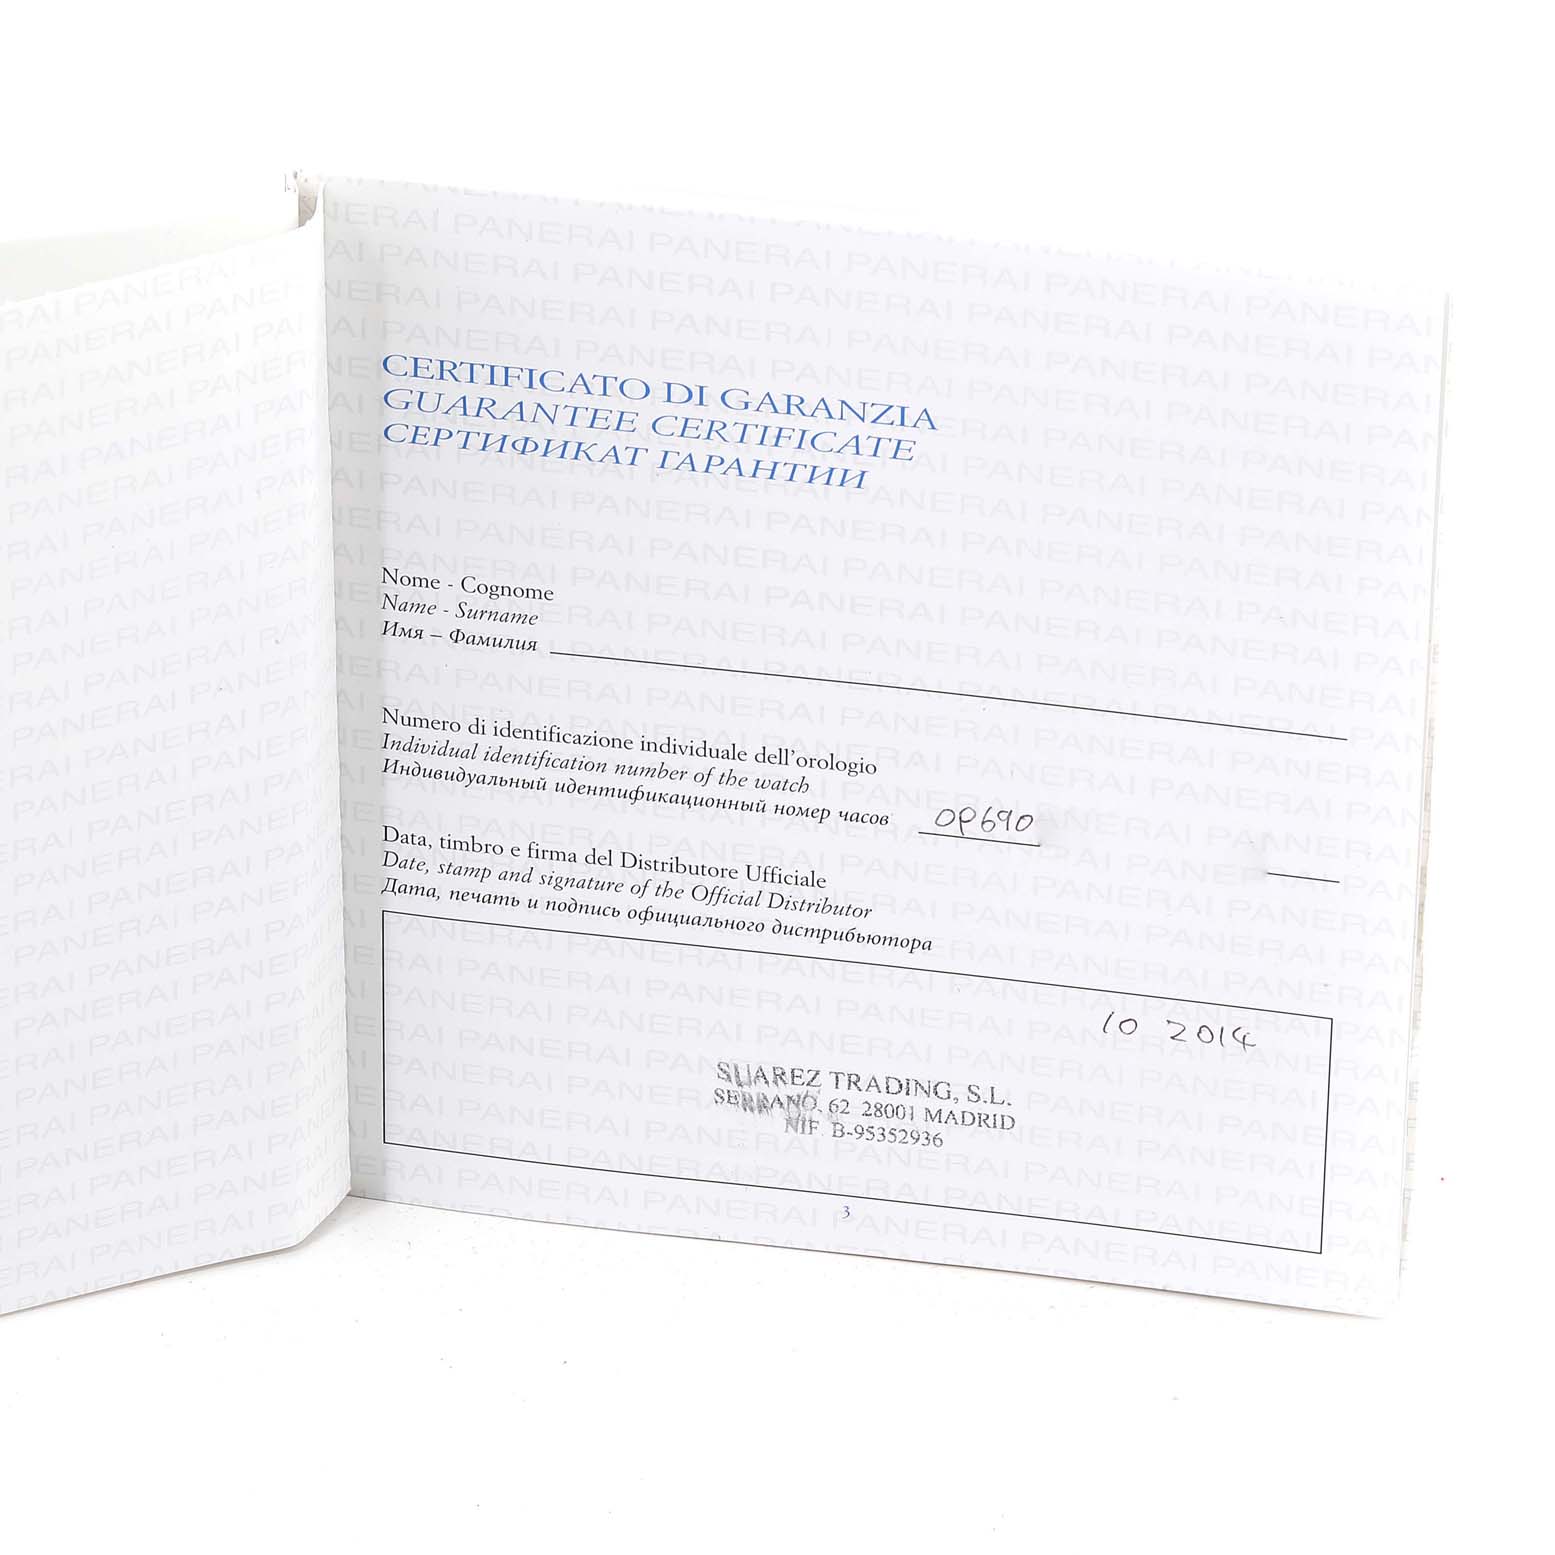 CERTIFICATO DI GARANZIA
GUARANTEE CERTIFICATE
СЕРТИФИКАТ ГАРАНТИИ
Nome - Cognome
Name - Surname
Имя – Фамилия
Numero di identificazione individuale dell'orologio
Individual identification number of the watch
Индивидуальный идентификационный номер часов OP690
Data, timbro e firma del Distributore Ufficiale
Date, stamp and signature of the Official Distributor
Дата, печать и подпись официального дистрибьютора
10 2014
SUAREZ TRADING, S.L.
SERRANO, 62 28001 MADRID
NIF. B-95352936
3